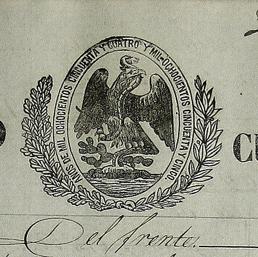 AÑOS DE MIL OCHOCIENTOS CINCUENTA Y CUATRO Y MIL-OCHOCIENTOS CINCUENTA Y CINCO
CU
Del frente.